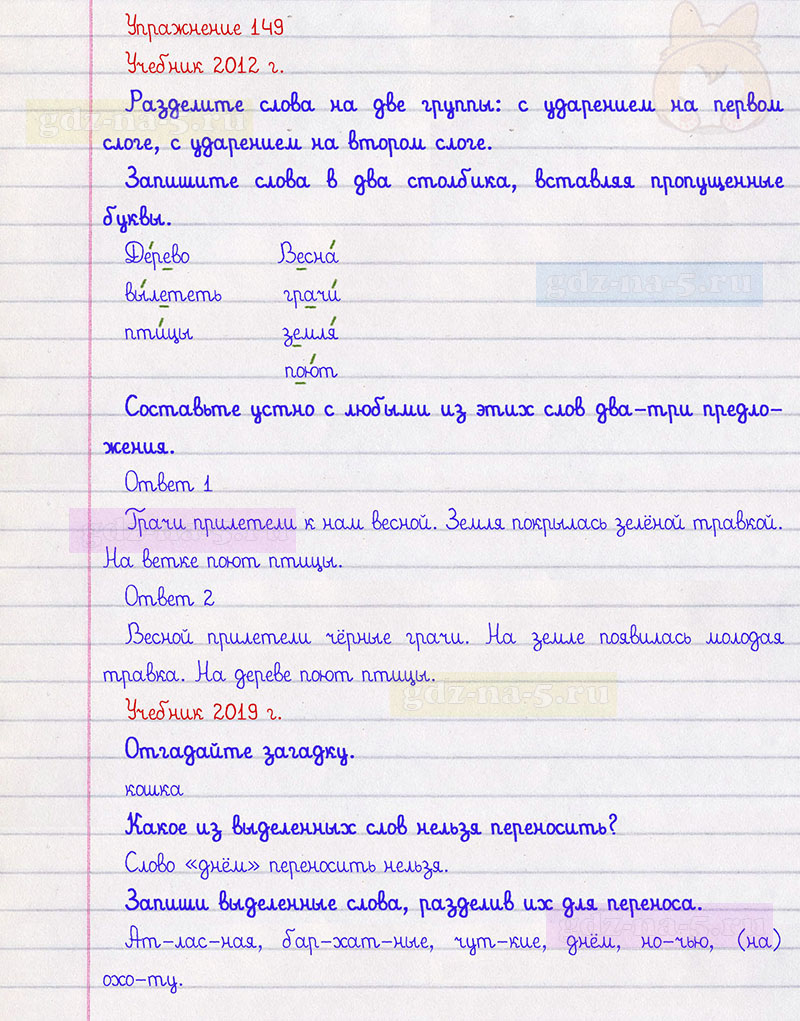 Упражнение 149
Учебник 2012 г.
Разделите слова на две группы: с ударением на первом
gdz-na-5.ru
слоге, с ударением на втором слоге.
Запишите слова в два столбика, вставляя пропущенные
буквы.
Де́рево Весна́
вы́лететь грачи́
gdz-na-5.ru
пти́цы земля́
пою́т
Составьте устно с любыми из этих слов два-три предло-
жения.
Ответ 1
Грачи прилетели к нам весной. Земля покрылась зелёной травкой.
gdz-na-5.ru
На ветке поют птицы.
Ответ 2
Весной прилетели чёрные грачи. На земле появилась молодая
травка. На дереве поют птицы.
gdz-na-5.ru
Учебник 2019 г.
Отгадайте загадку.
кошка
Какое из выделенных слов нельзя переносить?
Слово «днём» переносить нельзя.
Запиши выделенные слова, разделив их для переноса.
gdz-na-5.ru
Ат-лас-ная, бар-хат-ные, чут-кие, днём, но-чью, (на)
охо-ту.